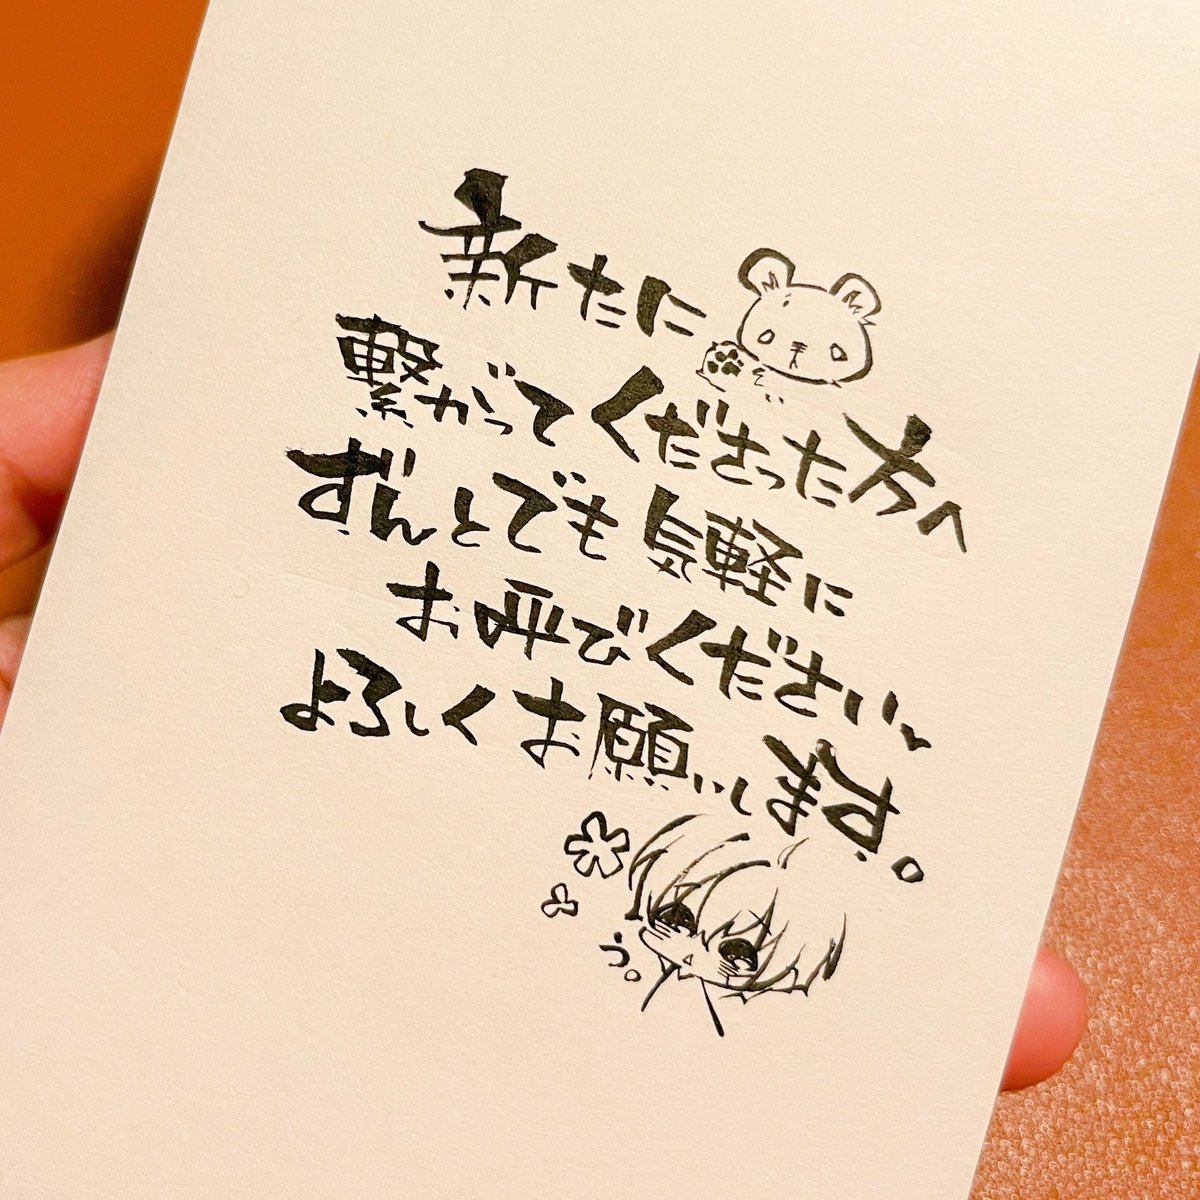 新たに
繋がってくださった方へ
ずんとでも気軽に
お呼びください
よろしくお願いします。
う。